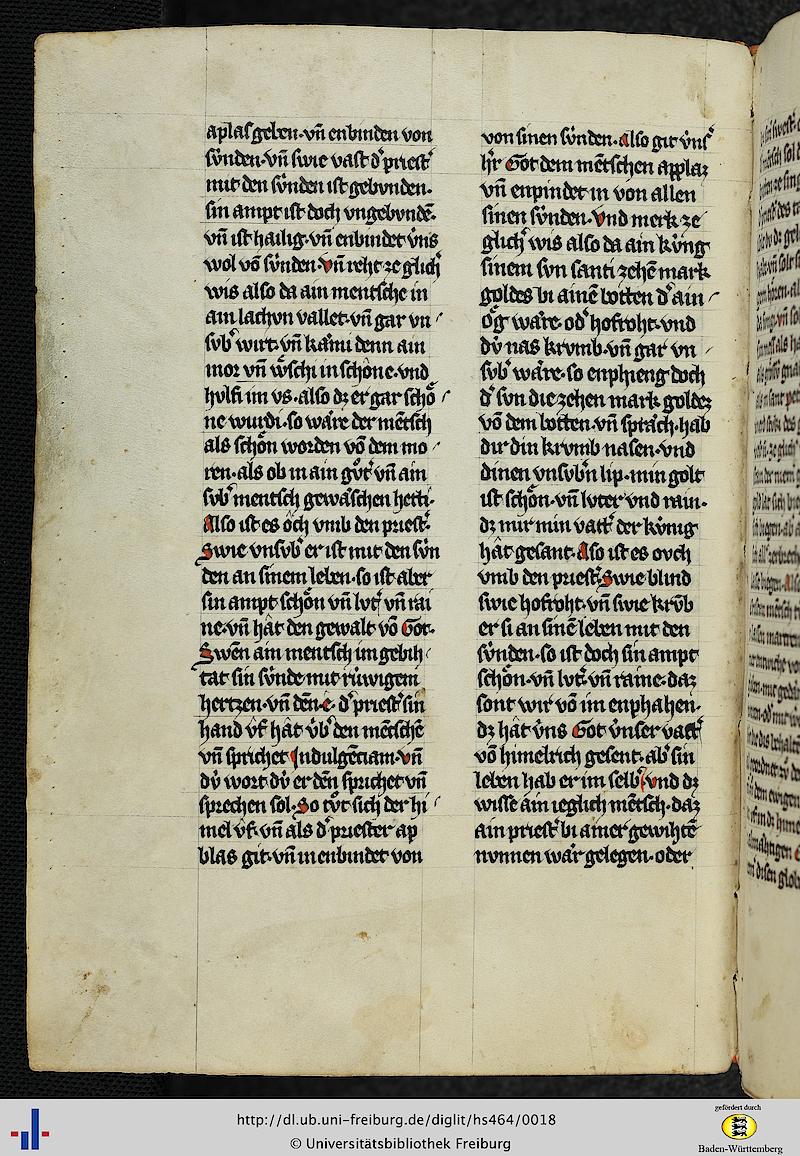 aplas geben · vn̄ enbinden von
sv̍nden · vn̄ swie vast d᾽ priest᾽
mit den sv̍nden ist gebvnden ·
sin ampt ist doch vngebvndē ·
vn̄ ist hailig · vn̄ enbindet v̍ns
wol vō sv̍nden · vn̄ reht ze glich᾽
wis also da ain mentsche in
ain lachvn vallet · vn̄ gar vn
svb᾽ wirt · vn̄ kämi denn ain
mor vn̄ wͦschi in schöne · vnd
hvlfi im vs · also dz er gar schö
ne wurdi · so wäre der mētsch
als schön worden vō dem mo
ren · als ob in ain gv̊t᾽ vn̄ ain
svb᾽ mentsch gewäschen hetti ·
Also ist es öch vmb den priest᾽ ·
Swie vnsvb᾽ er ist mit den sv̍n
den an sinem leben · so ist aber
sin ampt schön vn̄ lvt᾽ vn̄ rai
ne · vn̄ hât den gewalt vō Got ·
Swēn ain mentsch im gebih
tat sin sv̍nde mit rv̍wigem
hertzen · vn̄ dēn · e · d᾽ priest᾽ sin
hand vf hât v̍b᾽ den mētschē
vn̄ sprichet Indulgēciam · vn̄
dv̍ wort dv̍ er dēn sprichet vn̄
sprechen sol · So tv̊t sich der hi
mel vf · vn̄ als d᾽ priester ap
blas git · vn̄ in enbindet von
von sinen sv̍nden · Also git v̍ns᾽
h᾽r Got dem mētschen applaz
vn̄ enpindet in von allen
sinen sv̍nden · Vnd merk ze
glich᾽ wis also da ain kv̍ng
sinem svn santi zehē mark
goldes bi ainē botten d᾽ ain
ög wäre · od᾽ hofroht · vnd
dv̍ nas krvmb · vn̄ gar vn
svb᾽ wäre · so enphieng doch
d᾽ svn die zehen mark goldez
vō dem botten · vn̄ sprâch · hab
dir din krvmb nasen · vnd
dinen vnsvb᾽n lip · min golt
ist schön · vn̄ lvter vnd rain ·
dz mir min vatt᾽ der kv̍nig
hât gesant · Also ist es ovch
vmb den priest᾽ · Swie blind
swie hofroht · vn̄ swie krv̄b
er si an sinē leben mit den
sv̍nden · so ist doch sin ampt
schön · vn̄ lvt᾽ · vn̄ raine · daz
sont wir vō im enphahen ·
dz hât v̍ns Got v̍nser vatt᾽
vō himelrich gesent · ab᾽ sin
leben hab er im selb᾽ · vnd dz
wisse ain ieglich mētsch · daz
ain priest᾽ bi ainer gewihtē
nvnnen wär gelegen · oder
http://dl.ub.uni-freiburg.de/diglit/hs464/0018
© Universitätsbibliothek Freiburg
gefördert durch
Baden-Württemberg